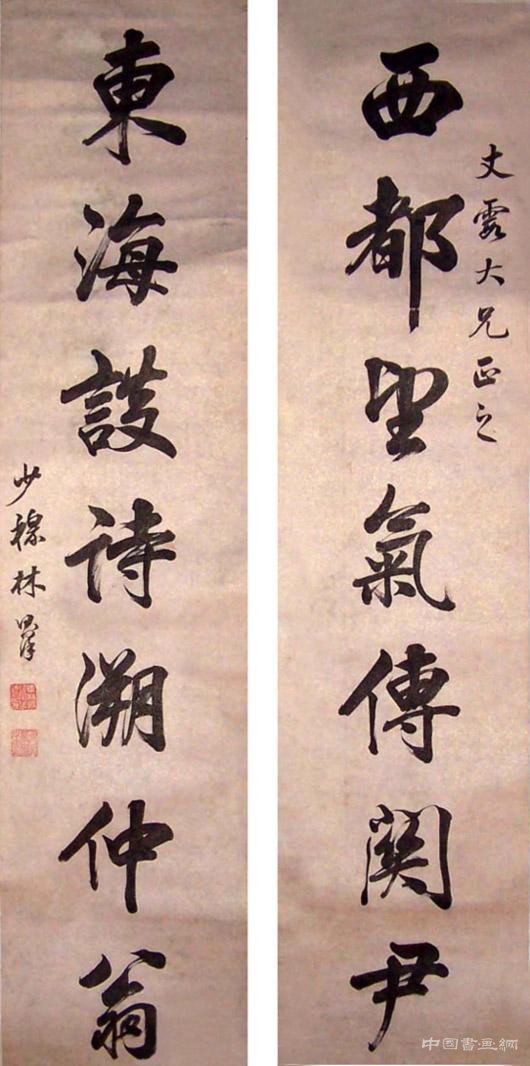 文霞大兄正之
西都望氣傳關尹
東海談詩溯仲翁
少穆林則徐
中國書画網